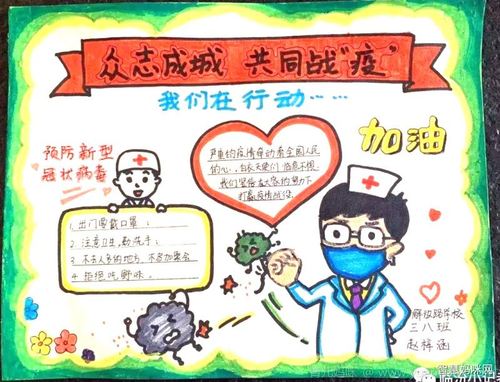 众志成城 共同战"疫"
我们在行动……
加油
预防新型
冠状病毒
严重的疫情牵动着全国人民
的心,白衣天使们
我们坚信在大家的努力下
打赢疫情战役
1. 出门要戴口罩;
2. 注意卫生,勤洗手;
3. 不去人多的地方,不参加聚会
4. 拒绝吃野味。
解放路学校
三八班
赵梓涵
智慧妈咪网